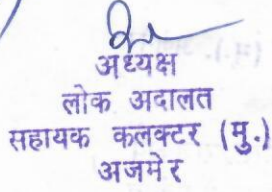 अध्यक्ष
लोक अदालत
सहायक कलक्टर (मु.)
अजमेर